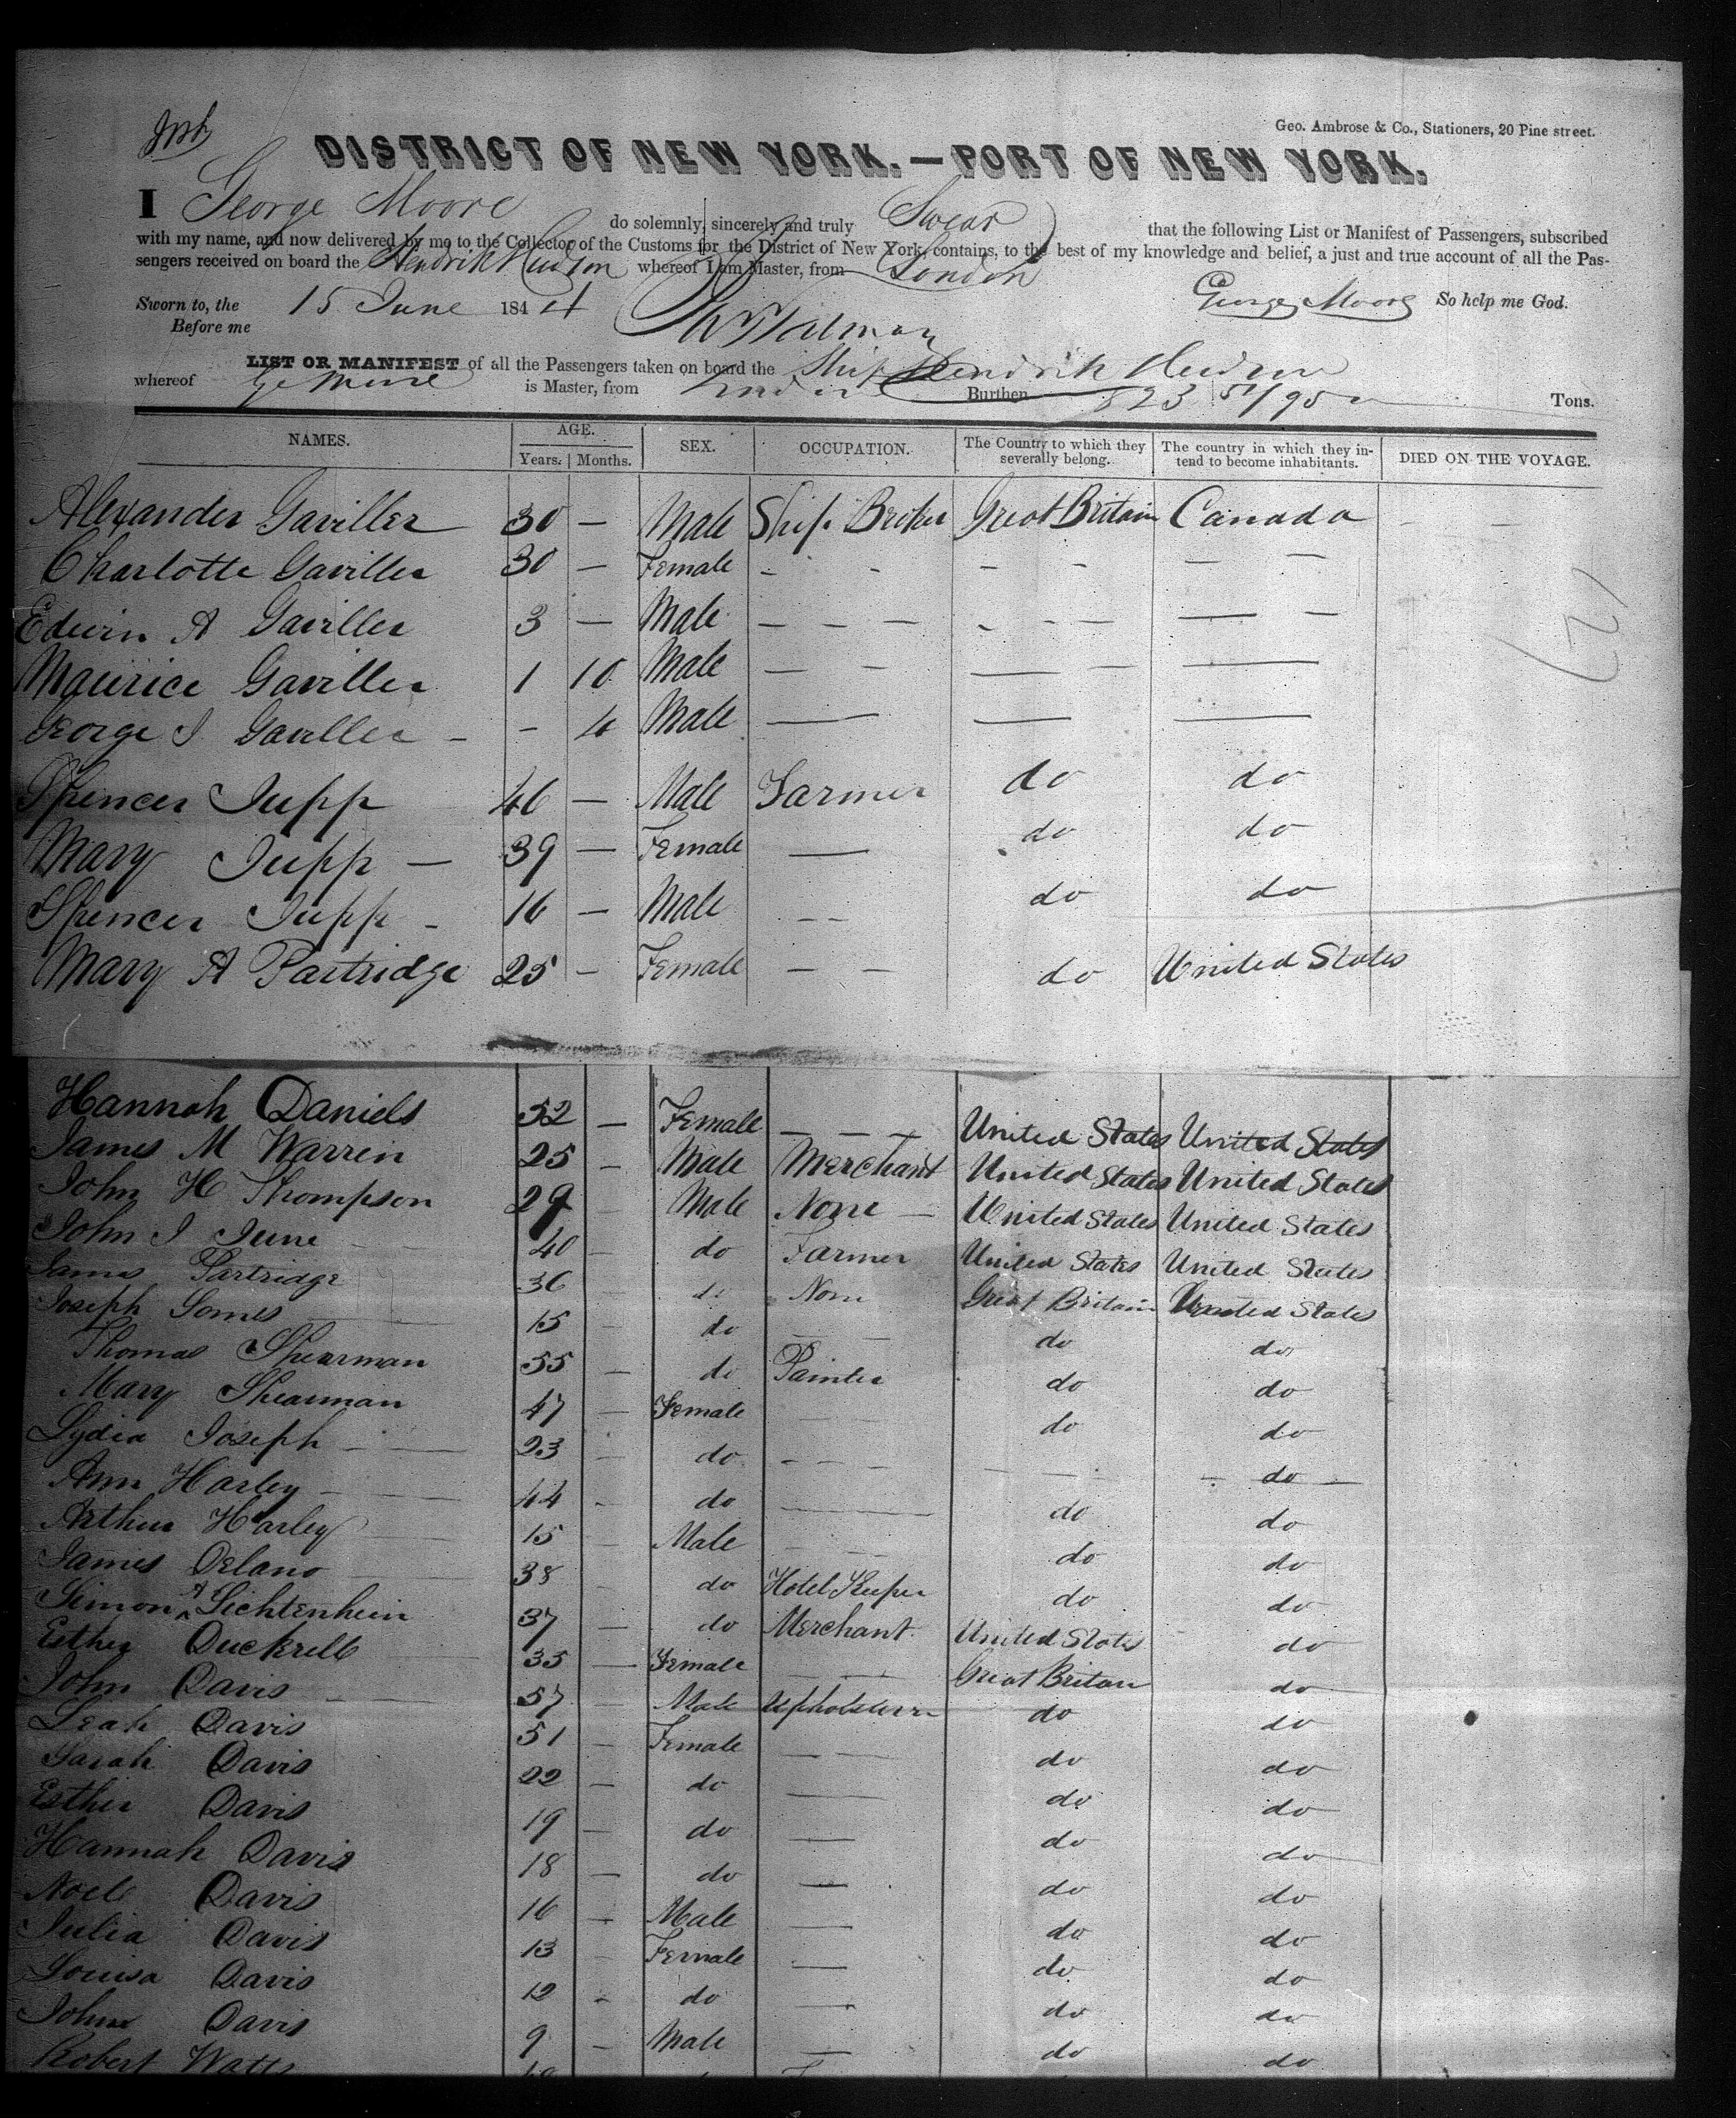 Geo. Ambrose & Co., Stationers, 20 Pine street.
DISTRICT OF NEW YORK.—PORT OF NEW YORK.
I George Moore do solemnly, sincerely and truly Swear that the following List or Manifest of Passengers, subscribed
with my name, and now delivered by me to the Collector of the Customs for the District of New York, contains, to the best of my knowledge and belief, a just and true account of all the Pas-
sengers received on board the Hendrik Hudson whereof I am Master, from London
Sworn to, the 15 June 1844 George Moore So help me God.
Before me
LIST OR MANIFEST of all the Passengers taken on board the Ship Hendrik Hudson
whereof Ge Moore is Master, from London Burthen 823 51/95 Tons.
NAMES. AGE. SEX. OCCUPATION. The Country to which they severally belong. The country in which they in-tend to become inhabitants. DIED ON THE VOYAGE.
Years. Months.
Alexander Gaviller 30 — Male Ship Broker Great Britain Canada
Charlotte Gaviller 30 — Female - - - - — —
Edwin A Gaviller 3 — Male — — — - - - — —
Maurice Gaviller 1 10 Male — — — — —
George I Gaviller - - 4 Male — — —
Spencer Jupp 46 — Male Farmer do do
Mary Jupp — 39 — Female — do do
Spencer Jupp - 16 — Male - - do do
Mary A Partridge 25 - Female — — do United States
127
Hannah Daniels 52 — Female — — — United States United States
James M Warren 25 - Male Merchant United States United States
John H Thompson 29 - Male None — United States United States
John I June 40 - do Farmer United States United States
James Partridge 36 do None Great Britain United States
Joseph Somes 15 - do — — do do
Thomas Shearman 55 - do Painter do do
Mary Shearman 47 — Female - - - do do
Lydia Joseph - — 23 - do - - - - — - do —
Ann Harley - — — 44 - do — do do
Arthur Harley — 15 - Male - - do do
James Delano — 38 - do Hotel Keeper do do
Simon A Lichtenhein 37 — do Merchant United States do
Esther Duckrell 35 — Female — — Great Britain do
John Davis - — 57 - Male Upholsterer do do
Leah Davis 51 - Female — — do do
Sarah Davis 22 — do — do do
Esther Davis 19 — do — do do
Hannah Davis 18 — do — do do
Noel Davis 16 - Male — do do
Julia Davis 13 - Female — do do
Louisa Davis 12 - do — do do
John Davis 9 - Male — do do
Robert Watts